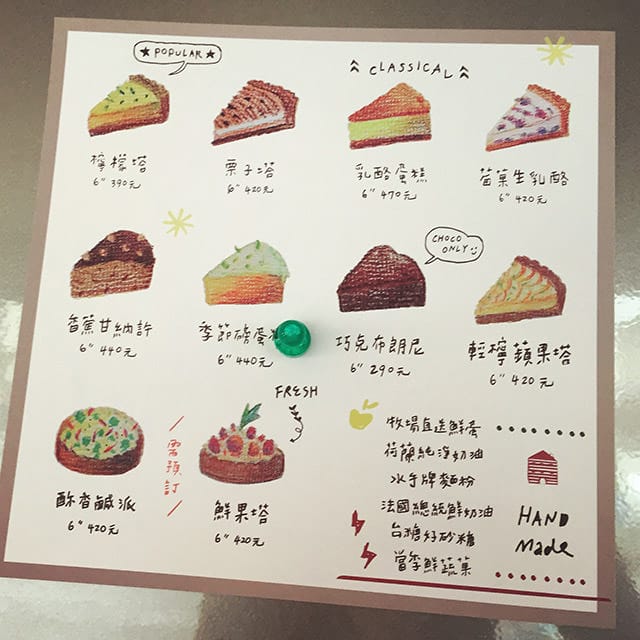 ★ POPULAR ★
CLASSICAL
檸檬塔
6" 390元
栗子塔
6" 420元
乳酪蛋糕
6" 470元
莓菓生乳酪
6" 420元
CHOCO
ONLY
香蕉甘納許
6" 440元
季節磅蛋
6" 440元
巧克布朗尼
6" 290元
輕檸蘋果塔
6" 420元
FRESH
需預訂
酥香鹹派
6" 420元
鮮果塔
6" 420元
牧場直送鮮蛋
荷蘭純淨奶油
水手牌麵粉
法國總統鮮奶油
台糖好砂糖
當季鮮蔬菓
HAND
made